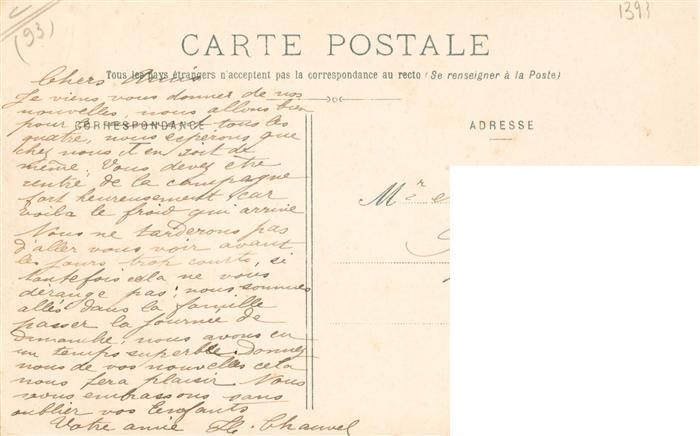 (93)
1393
CARTE POSTALE
Tous les pays étrangers n'acceptent pas la correspondance au recto (Se renseigner à la Poste)
CORRESPONDANCE
ADRESSE
Chers Amis
Je viens vous donner de nos
nouvelles, nous allons bien
pour tous les
quatre, nous esperons que
chez vous il en soit de
même. Vous devez être
rentré de la campagne
fort heureusement car
voila le froid qui arrive
Nous ne tarderons pas
d'aller vous voir avant
les jours trop courts, si
toutefois cela ne vous
dérange pas; nous sommes
allés dans la famille
passer la journée de
dimanche, nous avons eu
un temps superbe. Donnez
nous de vos nouvelles cela
nous fera plaisir. Nous
vous embrassons sans
oublier vos Enfants
Votre amie Chauvel
Mr